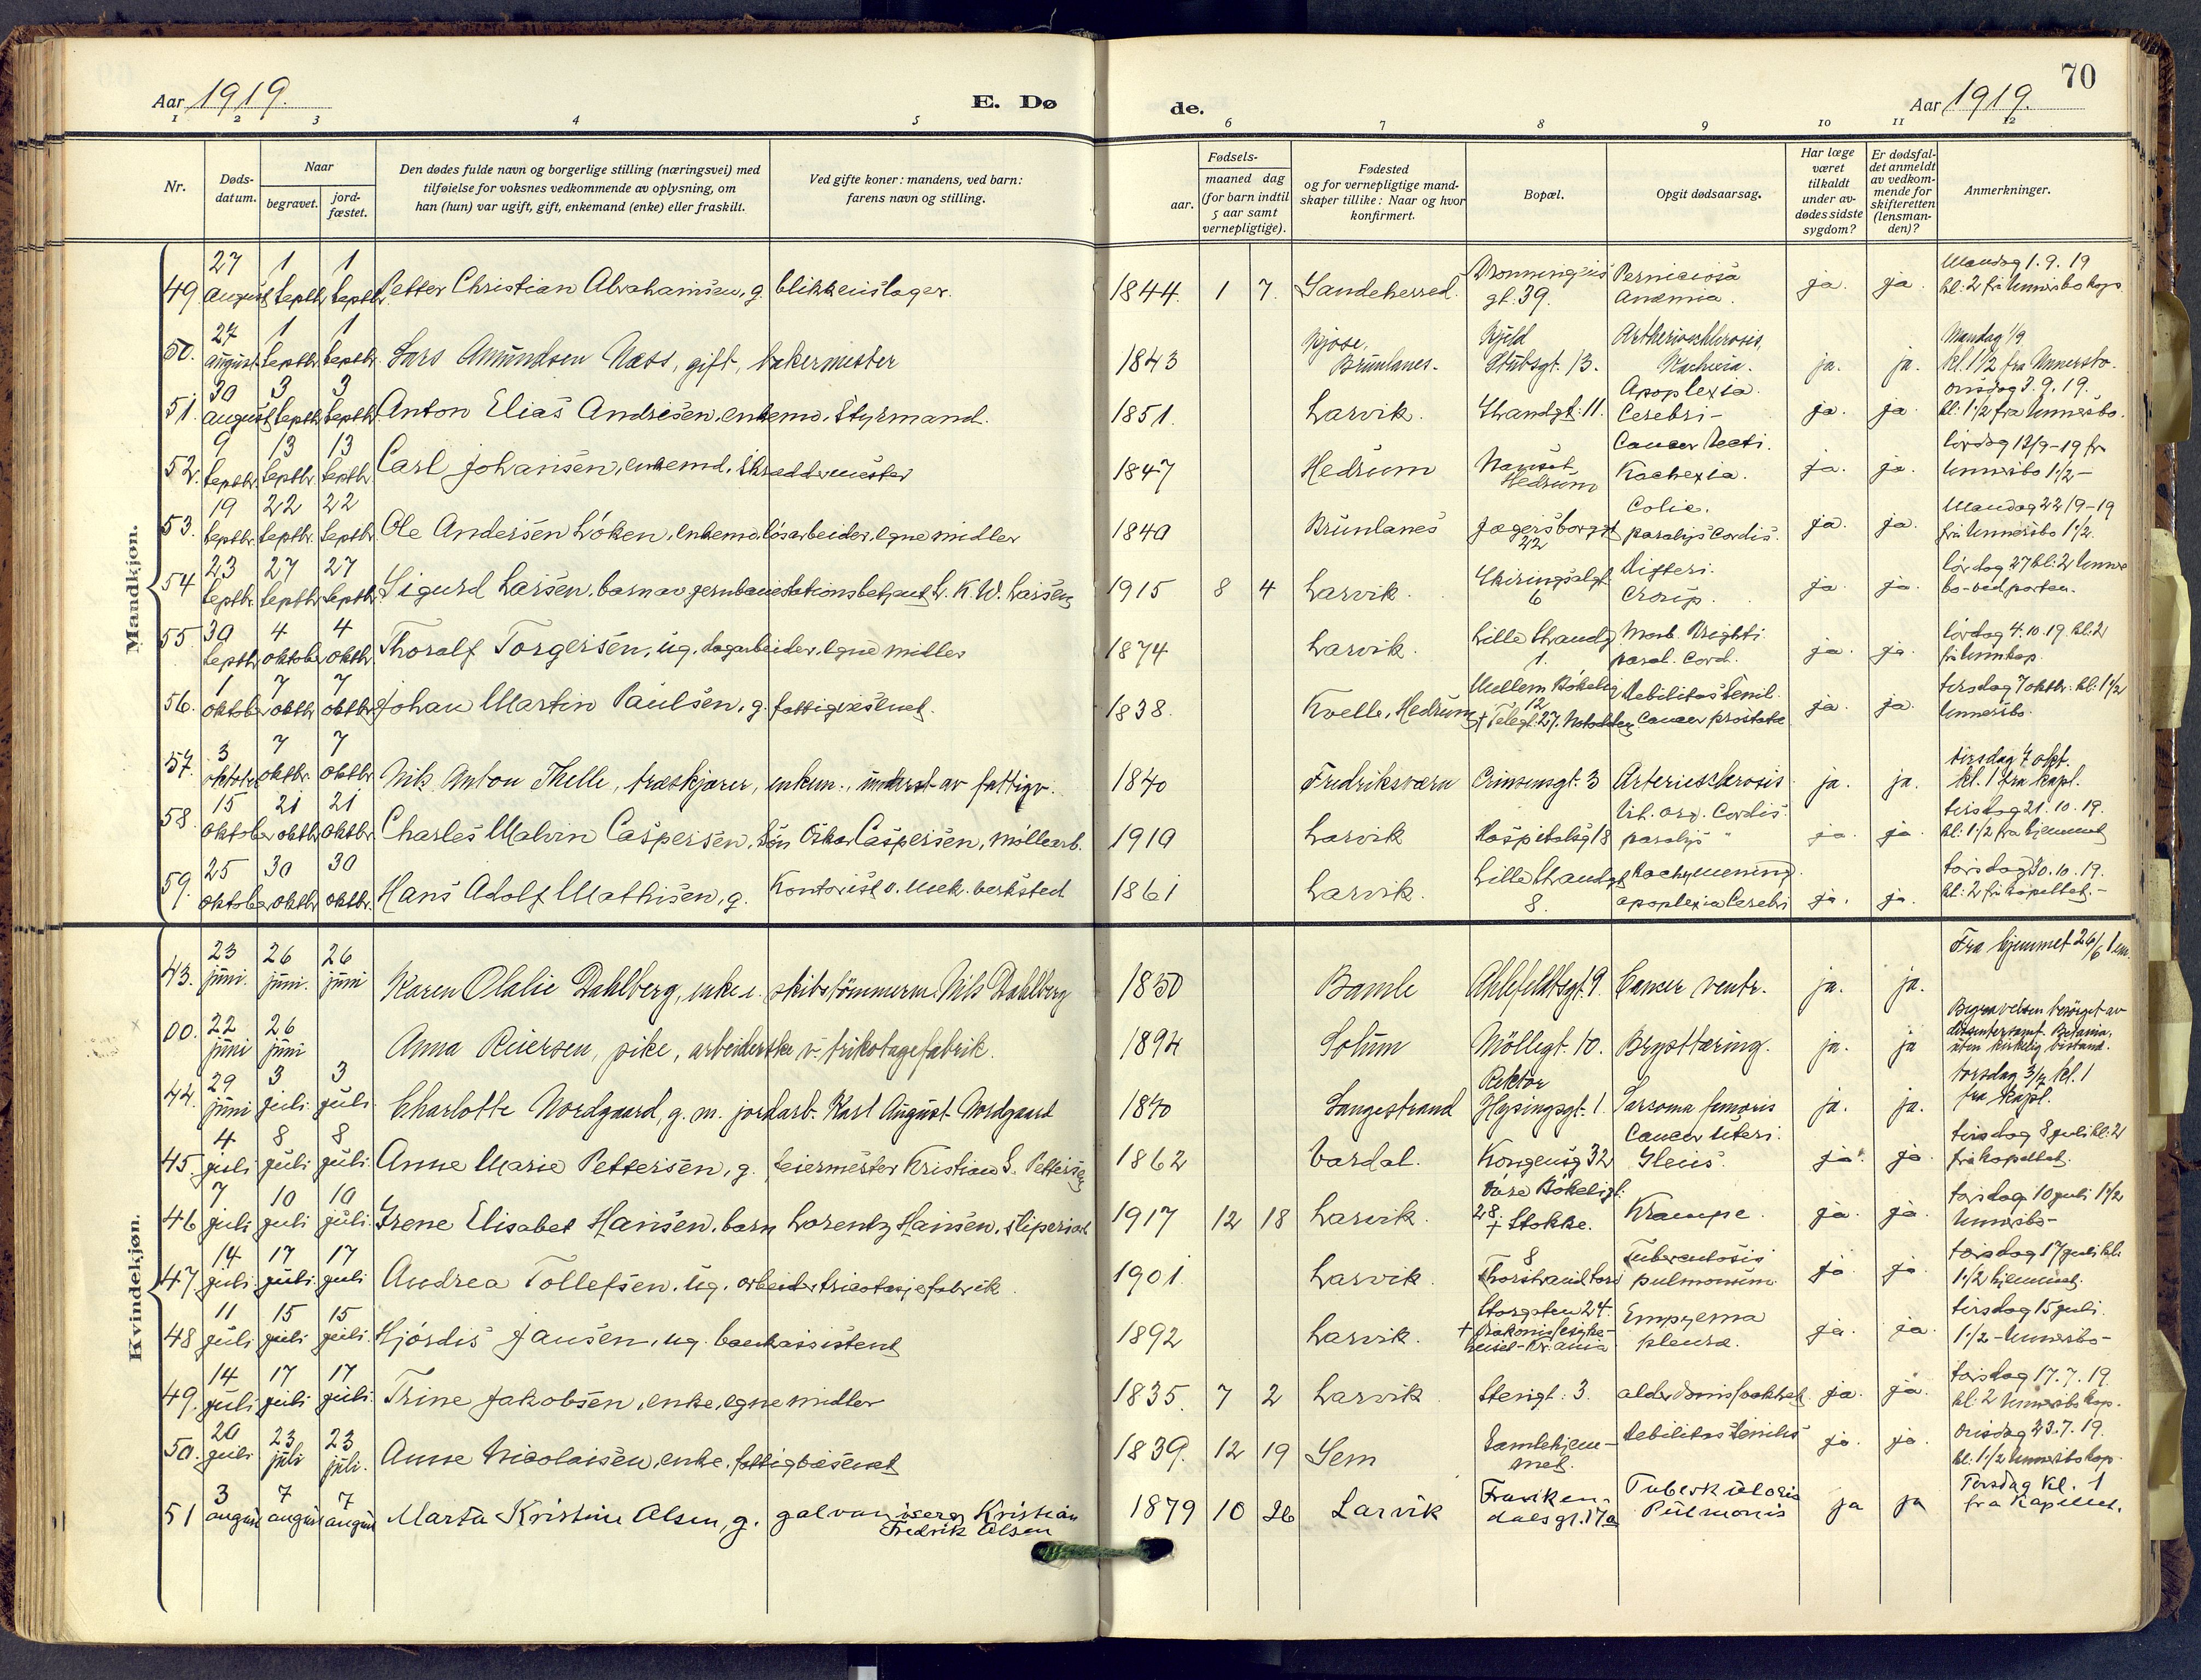 70
Aar 1919. E. Dø de. Aar 1919.
1 2 3 4 5 6 7 8 9 10 11 12
Nr.
Døds-
datum.
Naar
begravet.
jord-
fæstet.
Den dødes fulde navn og borgerlige stilling (næringsvei) med
tilføielse for voksnes vedkommende av oplysning, om
han (hun) var ugift, gift, enkemand (enke) eller fraskilt.
Ved gifte koner: mandens, ved barn:
farens navn og stilling.
Fødsels-
aar.
maaned dag
(for barn indtil
5 aar samt
vernepligtige).
Fødested
og for vernepligtige mand-
skaper tillike: Naar og hvor
konfirmert.
Bopæl.
Opgit dødsaarsag.
Har læge
været
tilkaldt
under av-
dødes sidste
sygdom?
Er dødsfal-
det anmeldt
av vedkom-
mende for
skifteretten
(lensman-
den)?
Anmerkninger.
Mandkjøn.
49. 27 august 1 septbr. 1 septbr. Petter Christian Abrahamsen, g. blikkenslager. 1844. 1 7. Sandeherred. Dronningens gt. 39. Perniciosa Anæmia. ja. ja. Mandag 1.9.19 kl: 2 fra Unnersbo kap.
50. 27 august 1 septbr. 1 septbr. Lars Amundsen Næss, gift, bakermester 1843 Kjose, Brunlanes. Kjeld Stubsgt. 13. ja. ja. Mandag 1/9 kl. 1 1/2 fra Unnersbo.
51. 30 august 3 septbr. 3 septbr. Anton Elias Andresen, enkemd. Styrmand. 1851. Larvik. Strandgt. 11. Apoplexia Cerebri - ja. ja. onsdag 3.9.19. kl: 1 1/2 fra Unnersbo.
52. 9 septbr. 13 septbr. 13 septbr. Carl Johansen, enkemd. skreddermester 1847 Hedrum Nanset Hedrum Cancer recti. Kachexia. ja. ja. lørdag 12/9-19 fr Unnersbo 1 1/2 -
53. 19 septbr. 22 septbr. 22 septbr. Ole Andersen Løken, enkemd. løsarbeider, egne midler 1840 Brunlanes Jægersborggt 22 Colie. paralys cordis. ja. ja. Mandag 22/9-19 fra Unnersbo 1 1/2.
54 23 septbr. 27 septbr. 27 septbr. Sigurd Larsen, barn av jernbanestationsbetjent L. K. W. Larsen 1915 8 4 Larvik. Skiringsalgt 6 Difteri. Croup. ja. ja. lørdag 27 kl: 2 Unners bo - ved porten.
55 30 septbr 4 oktober 4 oktbr. Thoralf Torgersen, ug. dagarbeider, egne midler 1874 Larvik. Lille Strandg 1. Morb. Brighti paral. Cord. ja. ja. lørdag 4.10.19. kl: 2 fra Unnkap.
56. 1 oktober 7 oktbr 7 oktbr Johan Martin Paulsen, g. fattigvæsenet. 1838. Kvelle, Hedrum Mellem Bøkelig 12 † Telegt. 27. Notodden Debilitas senil. Cancer prostatæ ja. ja. tirsdag 7 oktbr. kl: 1 1/2 Unnersbo.
57. 3 oktober 7 oktbr. 7 oktbr. Nils Anton Thelle, træskjærer, enkem., underst. av fattigv. 1840 Fredriksværn 3 Arteriesclerosis ja. ja. tirsdag 7 okt. kl. 1 fra kapl.
58 15 oktober 21 oktbr 21 oktbr. Charles Malvin Caspersen, søn Oskar Caspersen, møllearb. 1910 Larvik Hospitalsg 18 Vit. org. Cordis. paralys " ja. ja. tirsdag 21.10.19. kl: 1 1/2 fra hjemmet
59. 25 oktober 30 oktbr 30 oktbr. Hans Adolf Mathisen, g. Kontorist v. mek. verksted 1861 Larvik. Lille Strandgt 8. apoplexia Cerebri ja. ja. torsdag 30.10.19. kl: 2 fra kapellet. -
Kvindekjøn.
43. 23 juni. 26 juni. 26 juni Karen Olalie Dahlberg, enke e. skibstømmerm. Nils Dahlberg 1850 Bamle Ahlefeldtsgt. 9. Cancer ventr. ja. ja. Fra hjemmet 26/6 1 em.
00. 22 juni 26 juni Anna Reiersen, pike, arbeiderske v. trikotagefabrik. 1894 Solum Møllegt. 10. Brysttæring. ja. ja Begravelsen besørget av dissentersamf. Betania, uten kirkelig bistand.
44. 29 juni 3 juli. 3 juli. Charlotte Nordgaard, g. m. jordarb. Karl August Nordgaard 1840 Langestrand Rektor Hysingsgt. 1. Sarcoma femoris ja. ja. torsdag 3/7 kl. 1 fra kapl.
45. 4 juli 8 juli 8 juli. Anne Marie Pettersen, g. feiermester Kristian S. Pettersen 1862 Vardal. Kongensg 32 Cancer Uteri. Ileus. ja. ja. tirsdag 8 juli kl: 2 fra kapellet.
46 7 juli 10 juli 10 juli. Irene Elisabet Hansen, barn Lorentz Hansen, sliperiarb 1917 12 18 Larvik. Øvre Bøkeligt. 28. † Stokke. Krampe. ja. ja. torsdag 10 juli 1 1/2 Unnersbo -
47. 14 juli. 17 juli. 17 juli Andrea Tollefsen. ug. arbeider tricotasjefabrik. 1901. Larvik. 8 Thorstrand torv Tuberculosis pulmonum ja. ja. torsdag 17 juli kl. 1 1/2 hjemmet.
48 11 juli 15 juli 15 juli. Hjørdis Jansen, ug. bankassistent 1892 Larvik. Storgaten 24. † Diakonissesyke- huset - Kr.ania Empyema pleura. ja. ja. tirsdag 15 juli. 1 1/2 - Unnersbo -
49. 14 juli. 17 juli 17 juli. Trine Jakobsen, enke, egne midler 1835. 7 2 Larvik. Stengt. 3. alderdomssvakhet ja. ja. torsdag 17.7.19. kl: 2 Unnersbo kap.
50. 20 juli 23 juli 23 juli. Anne Nicolaisen, enke, fattigvæsenet 1839. 12 19 Sem Samlehjem- met. debilitas senilis ja. ja. onsdag 23.7.19. kl: 1 1/2 Unnersbo kap.
51 3 august 7 august 7 august Marta Kristine Olsen, g. galvaniserer Kristian Fredrik Olsen 1879 10 26 Larvik Frankendalsgt. 17a Tuberkulosis Pulmonis ja ja Torsdag kl. 1 fra Kapellet.